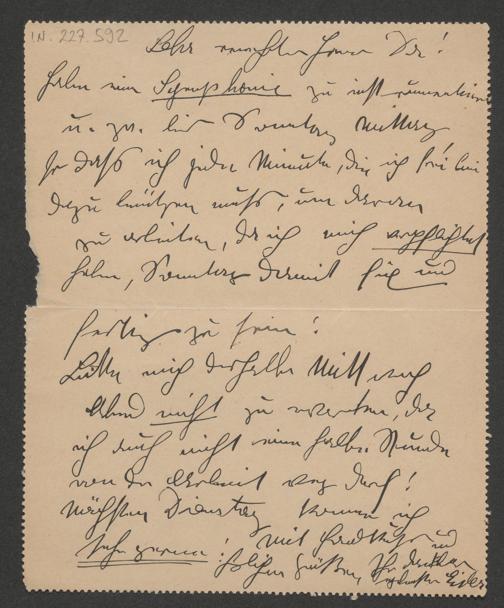 I.N. 227.592
Sehr verehrter Herr Dr!
Habe eine Symphonie zu instrumentieren
u. zw. bis Sonntag Mittag
so daß ich jede Minute, die ich frei bin
dazu benützen muß, um daran
zu arbeiten, da ich mich verpflichtet
habe, Sonntag damit fix und
fertig zu sein!
Bitte mich deshalb Mittwoch
Abend nicht zu erwarten, da
ich auch nicht eine halbe Stunde
von der Arbeit weg darf!
Nächsten Dienstag komme ich
sehr gerne! Mit Handkuß und
Grüßen, Ihr dankbar